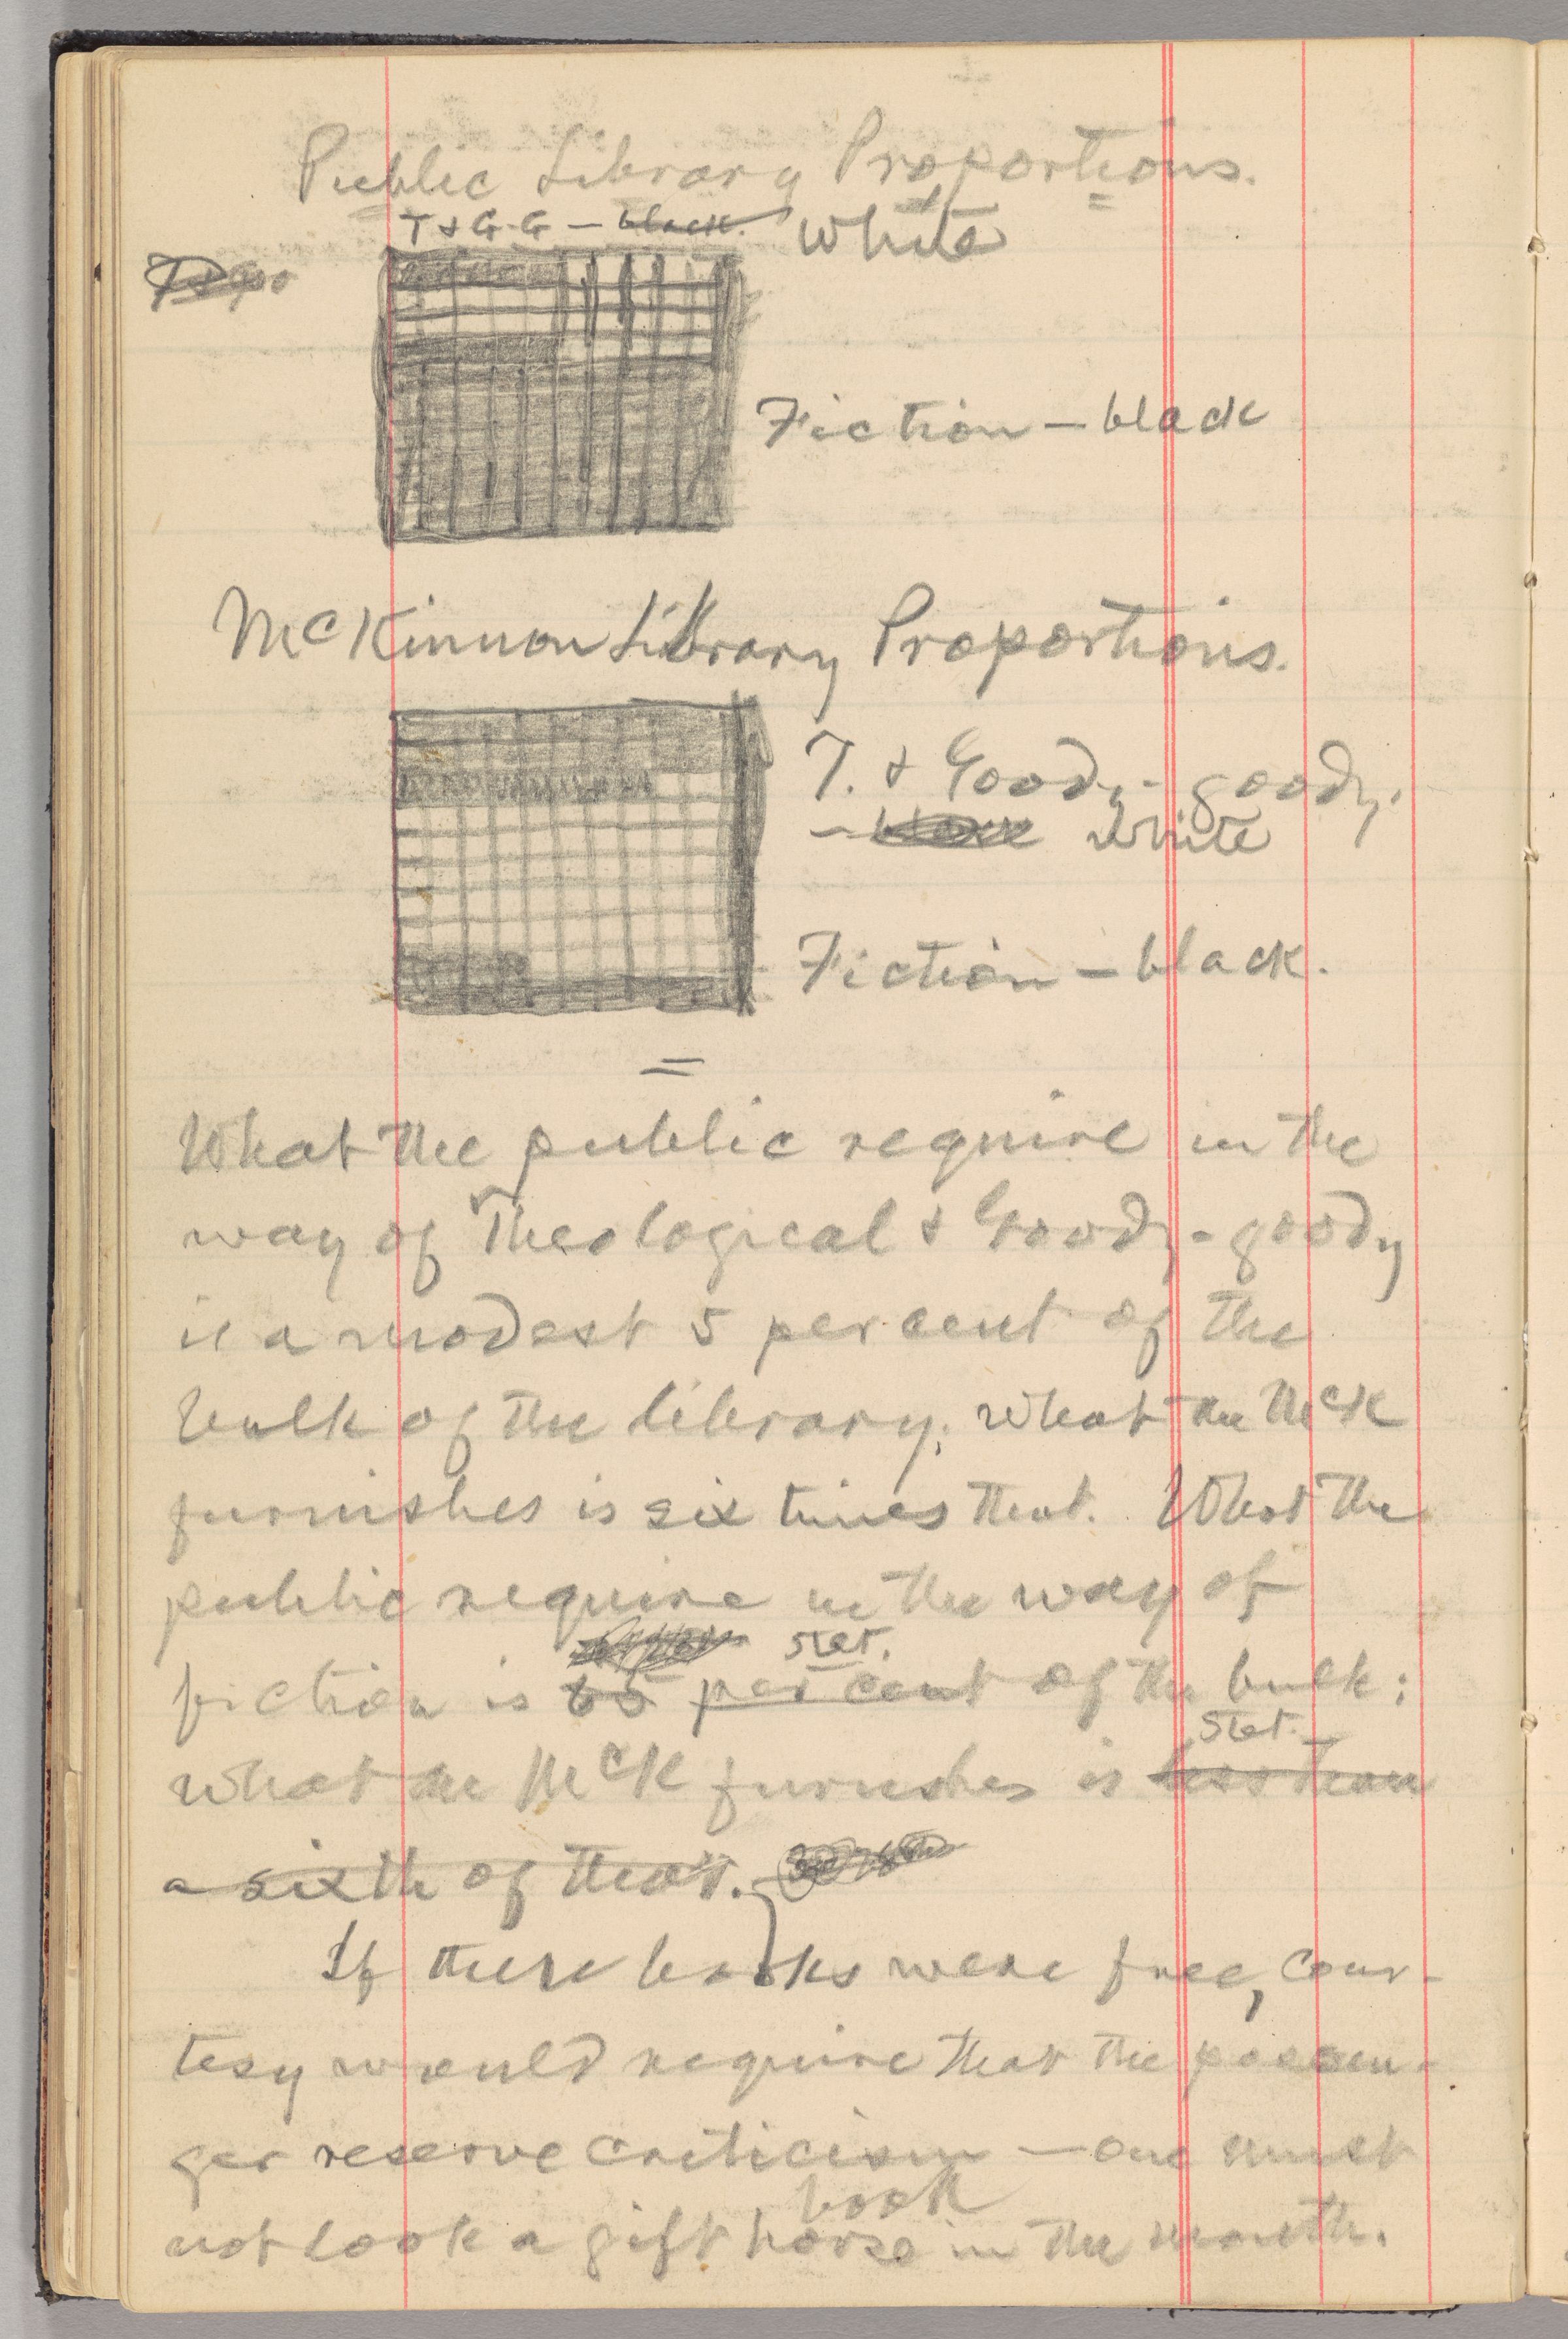 Public Library Proportions.
T & G-G — black. White
Fiction — black
McKinnon Library Proportions.
T. & Goody-goody.
— white
Fiction — black.
What the public require in the
way of Theological & Goody-goody
is a modest 5 per cent of the
bulk of the library; what the McK
furnishes is six times that. What the
public require in the way of
stet.
fiction is 65 per cent of the bulk;
stet.
what the McK furnishes is less than
a sixth of that.
If these books were free, cour-
tesy would require that the passen-
ger reserve criticism — one must
book
not look a gift horse in the mouth.